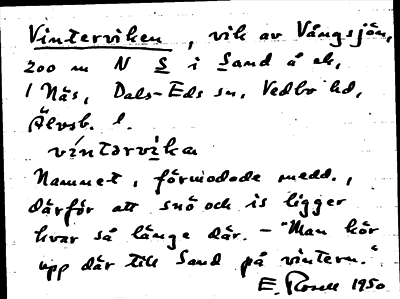 Vinterviken, vik av Vångsjön,
200 m N S i Sand å ek,
1 Näs, Dals-Eds sn, Vedbo hd,
Älvsb. l.
vintərvika
Namnet, förmodade medd.,
därför att snö och is ligger
kvar så länge där. – "Man kör
upp där till Sand på vintern."
E. Rosell 1950